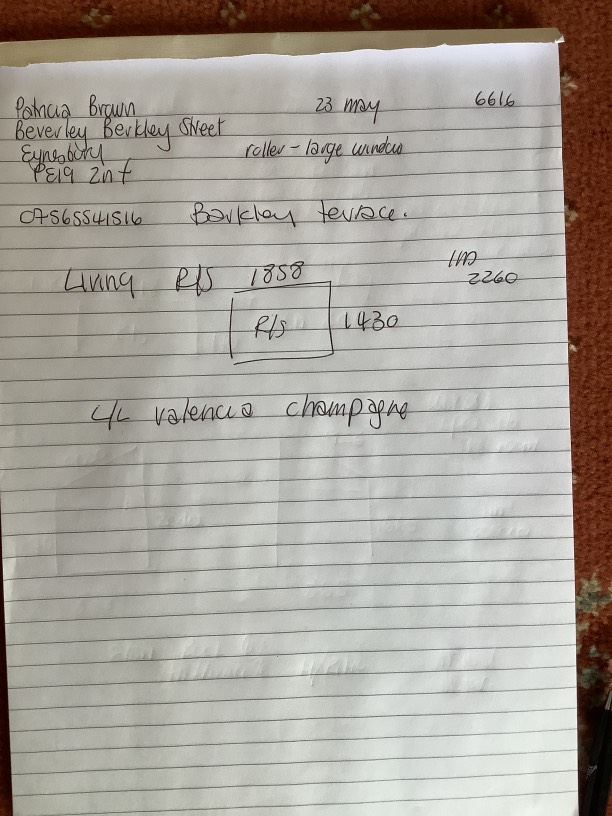 Patricia Brown 23 may 6616
Beverley Berkley Street
Eynesbury roller - large window
PE19 2nf
07565541516 Barkley terrace.
Living R/S 1858
2260
R/S 1430
L/L valencia champagne